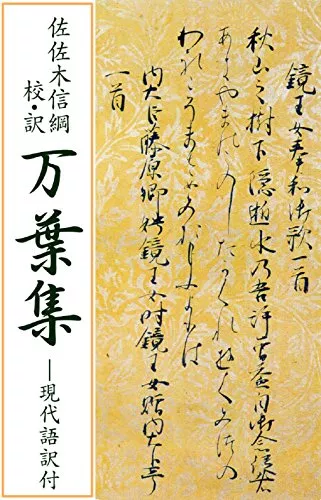 鏡王女奉和御歌一首
秋山之樹下隠逝水乃吾許曽益目御念従者
あきやまのこのしたかくれゆくみつの
われこそまさめ よりは
内大臣藤原卿娉鏡王女時鏡王女贈内大臣
一首
佐佐木信綱
校・訳
万葉集
―現代語訳付